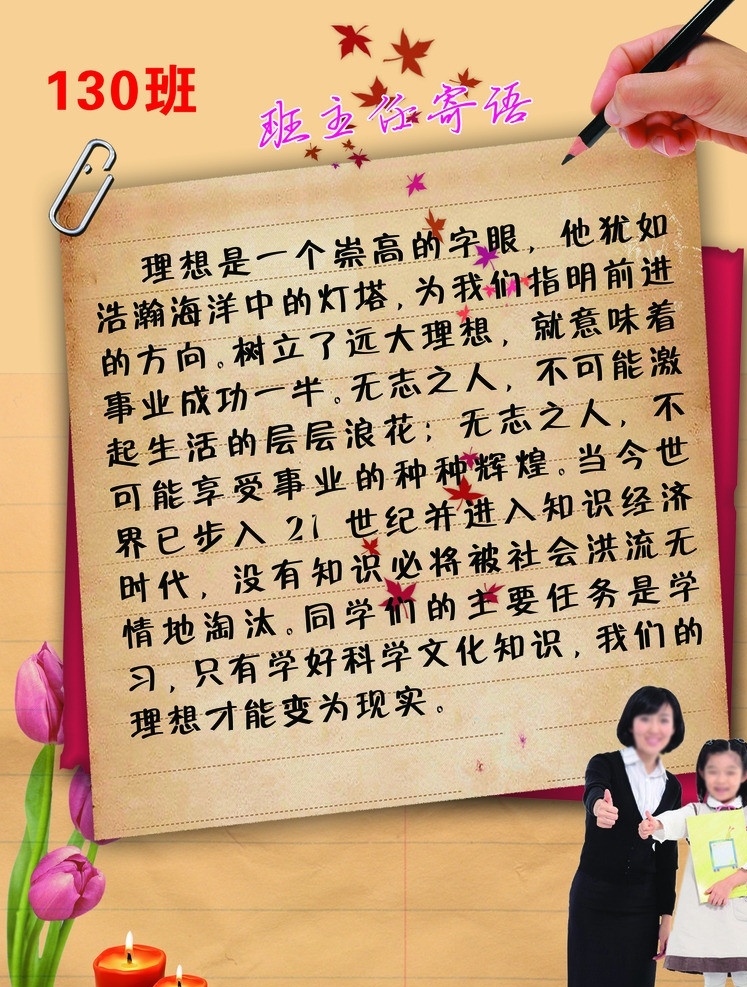 130班
班主任寄语
理想是一个崇高的字眼，他犹如
浩瀚海洋中的灯塔，为我们指明前进
的方向。树立了远大理想，就意味着
事业成功一半。无志之人，不可能激
起生活的层层浪花；无志之人，不
可能享受事业的种种辉煌。当今世
界已步入 21 世纪并进入知识经济
时代，没有知识必将被社会洪流无
情地淘汰。同学们的主要任务是学
习，只有学好科学文化知识，我们的
理想才能变为现实。